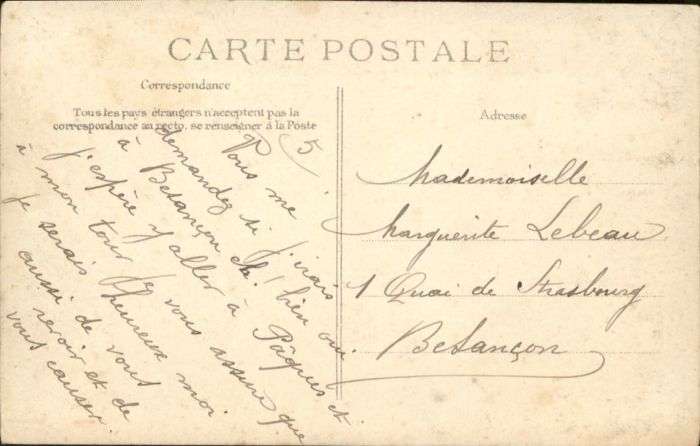 CARTE POSTALE
Correspondance
Tous les pays étrangers n'acceptent pas la
correspondance au recto. se renseigner à la Poste
Adresse
5
Vous me
demandez si j'irais
à Besançon, eh! bien oui
j'espère y aller à Pâques et
à mon tour je vous assure que
je serais heureux moi
aussi de vous
revoir et de
vous causer.
Mademoiselle
Marguerite Lebeau
1 Quai de Strasbourg
Besançon